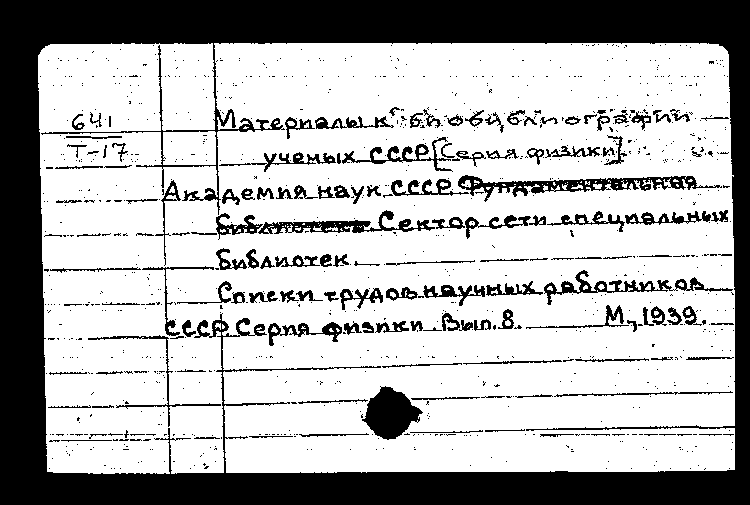 641
Т-17
Материалы к биобиблиографии
ученых СССР [Серия физики].
Академия наук СССР. Фундаментальная
библиотека. Сектор сети специальных
библиотек.
Списки трудов научных работников
СССР. Серия физики. Вып. 8. М., 1939.